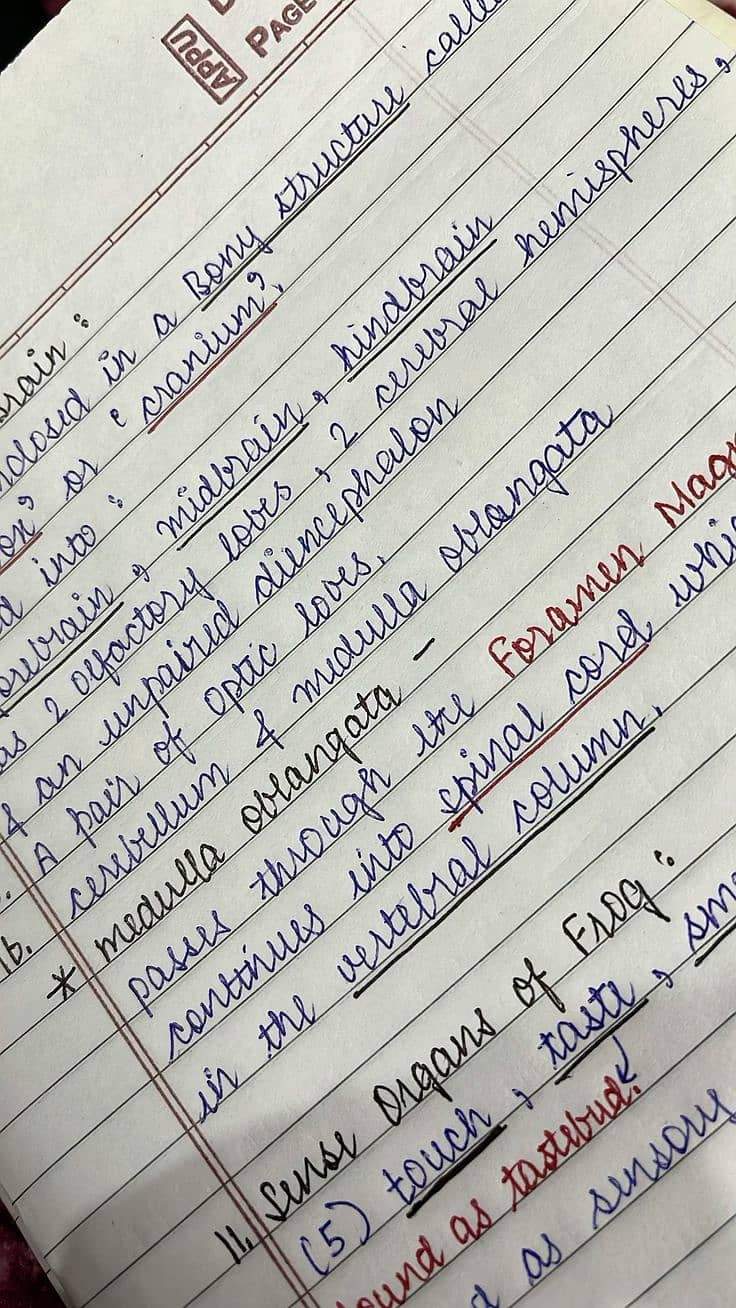 APPU
PAGE
rain :
nclosed in a Bony structure call
ox' or 'cranium'.
d into :
orebrain, midbrain, hindbrain
as 2 olfactory lobes, 2 cerebral hemispheres,
& an unpaired diencephalon
A pair of optic lobes.
cerebellum & medulla oblangata
* medulla oblangata -
passes through the Foramen Mag
continues into spinal cord whi
in the vertebral column.
11. Sense Organs of Frog :
(5) touch, taste, sm
ound as tastebud.
as sensory